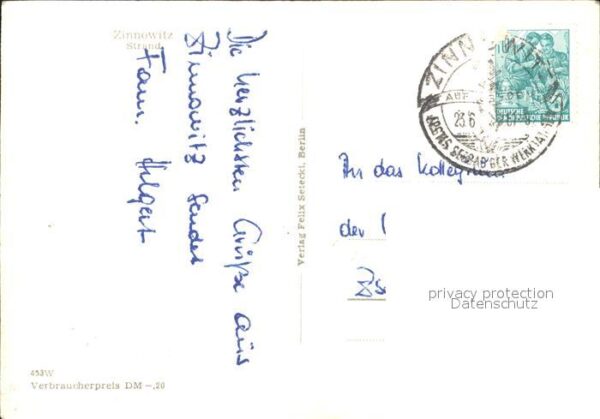 Zinnowitz
Strand
Die herzlichsten Grüße aus
Zinnowitz sendet
Fam. Helgert
Verlag Felix Setecki, Berlin
453W
Verbraucherpreis DM -,20
ZINNOWITZ
23.6
DER WERKTÄTIGEN
DEUTSCHE
DEMOKRATISCHE REPUBLIK
An das Kollegium
der
privacy protection
Datenschutz